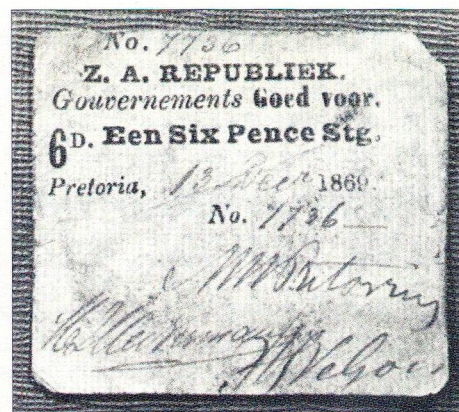 No. 7736
Z. A. REPUBLIEK.
Gouvernements Goed voor.
6 D. Een Six Pence Stg.
Pretoria, 13 1869.
No. 7736
MWPretorius